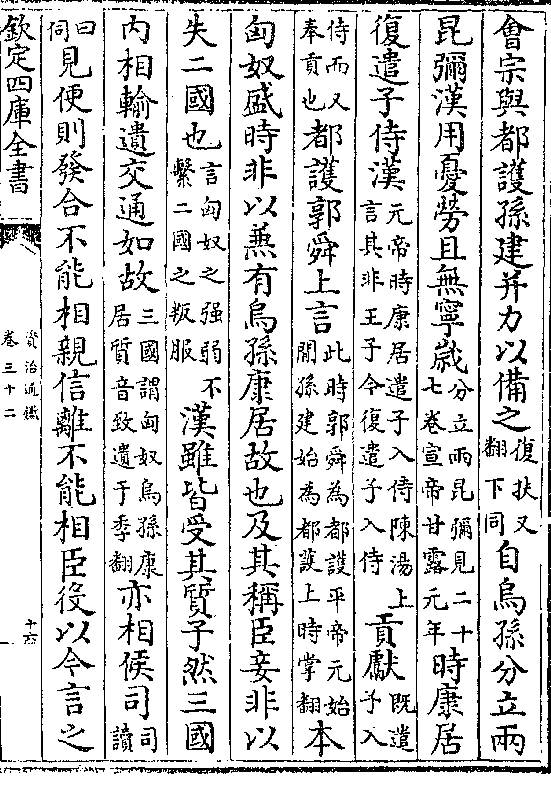 會宗與都護孫建并力以備之復扶又翻下同自烏孫分立兩
昆彌漢用憂勞且無寧歲分立兩昆彌見二十七卷宣帝甘露元年時康居
復遣子侍漢元帝時康居遣子入侍陳湯上言其非王子今復遣子入侍貢獻既遣子入
侍而又奉貢也都護郭舜上言此時郭舜為都護平帝元始間孫建始為都護上時掌翻本
匈奴盛時非以兼有烏孫康居故也及其稱臣妾非以
失二國也言匈奴之强弱不繫二國之叛服漢雖皆受其質子然三國
内相輸遺交通如故三國謂匈奴烏孫康居質音致遺于季翻亦相候司司讀
曰伺見便則發合不能相親信離不能相臣役以今言之
欽定四庫全書
資治通鑑
卷三十二
十六